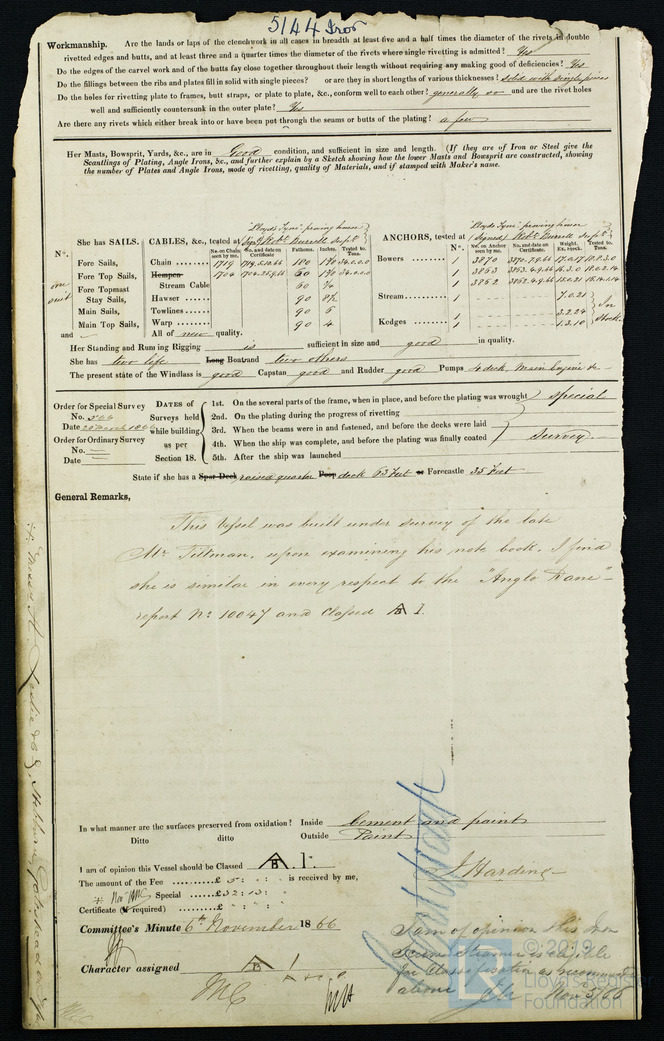 5144 Iron
Workmanship. Are the lands or laps of the clenchwork in all cases in breadth at least five and a half times the diameter of the rivets in double
rivetted edges and butts, and at least three and a quarter times the diameter of the rivets where single rivetting is admitted? Yes
Do the edges of the carvel work and of the butts fay close together throughout their length without requiring any making good of deficiencies? Yes
Do the fillings between the ribs and plates fill in solid with single pieces? or are they in short lengths of various thicknesses? solid with single pieces
Do the holes for rivetting plate to frames, butt straps, or plate to plate, &c., conform well to each other? generally so and are the rivet holes
well and sufficiently countersunk in the outer plate? Yes
Are there any rivets which either break into or have been put through the seams or butts of the plating? a few
Her Masts, Bowsprit, Yards, &c., are in Good condition, and sufficient in size and length. (If they are of Iron or Steel give the
Scantlings of Plating, Angle Irons, &c., and further explain by a Sketch showing how the lower Masts and Bowsprit are constructed, showing
the number of Plates and Angle Irons, mode of rivetting, quality of Materials, and if stamped with Maker's name.
Lloyd's Tyne proving house
Lloyd's Tyne proving house
She has SAILS. CABLES, &c., tested at Signd Robt Burrell Supt
ANCHORS, tested at (Signed) Robt Burrell Supt
No. No. on Chain seen by me. No. and date on Certificate Fathoms. Inches. Tested to. Tons.
No. No. on Anchor seen by me. No. and date on Certificate. Weight. Ex. stock. Tested to. Tons.
Fore Sails, Chain 1719
Bowers 1 3870
one Fore Top Sails, Hempen 1704 60
1 3863
suit Fore Topmast Stream Cable 60
1 3862
Stay Sails, Hawser 90
Stream 1 7.0.21
Main Sails, Towlines 90 5
1 3.2.24 In
Main Top Sails, Warp 90 4
Kedges 1 1.3.10 Stock
and All of new quality.
Her Standing and Running Rigging is sufficient in size and good in quality.
She has two life Long Boat and two others
The present state of the Windlass is good Capstan good and Rudder good Pumps 4 deck, Main Engine &c
Order for Special Survey
No. 566
Order for Ordinary Survey
No.
Date
DATES of Surveys held while building as per Section 18.
1st. On the several parts of the frame, when in place, and before the plating was wrought special
2nd. On the plating during the progress of rivetting
3rd. When the beams were in and fastened, and before the decks were laid
4th. When the ship was complete, and before the plating was finally coated survey
5th. After the ship was launched
State if she has a Spar Deck raised quarter Poop deck 63 Feet or Forecastle 35 Feet
General Remarks,
This Vessel was built under survey of the late
Mr Tillman, upon examining his note book, I find
she is similar in every respect to the "Anglo Dane"
report No 10047 and Classed A 1.
In what manner are the surfaces preserved from oxidation? Inside Cement and paint
Ditto ditto Outside Paint
I am of opinion this Vessel should be Classed A 1.
The amount of the Fee £ 5 : : is received by me,
Special £32 : 13 :
Certificate (if required) £ : :
J Harding
Committee's Minute 6th November 1866
Character assigned A 1
I am of opinion this Iron
Screw Steamer is eligible
for Classification as recommended
above Nov 5/66
© 2019
Lloyd's Register
Foundation